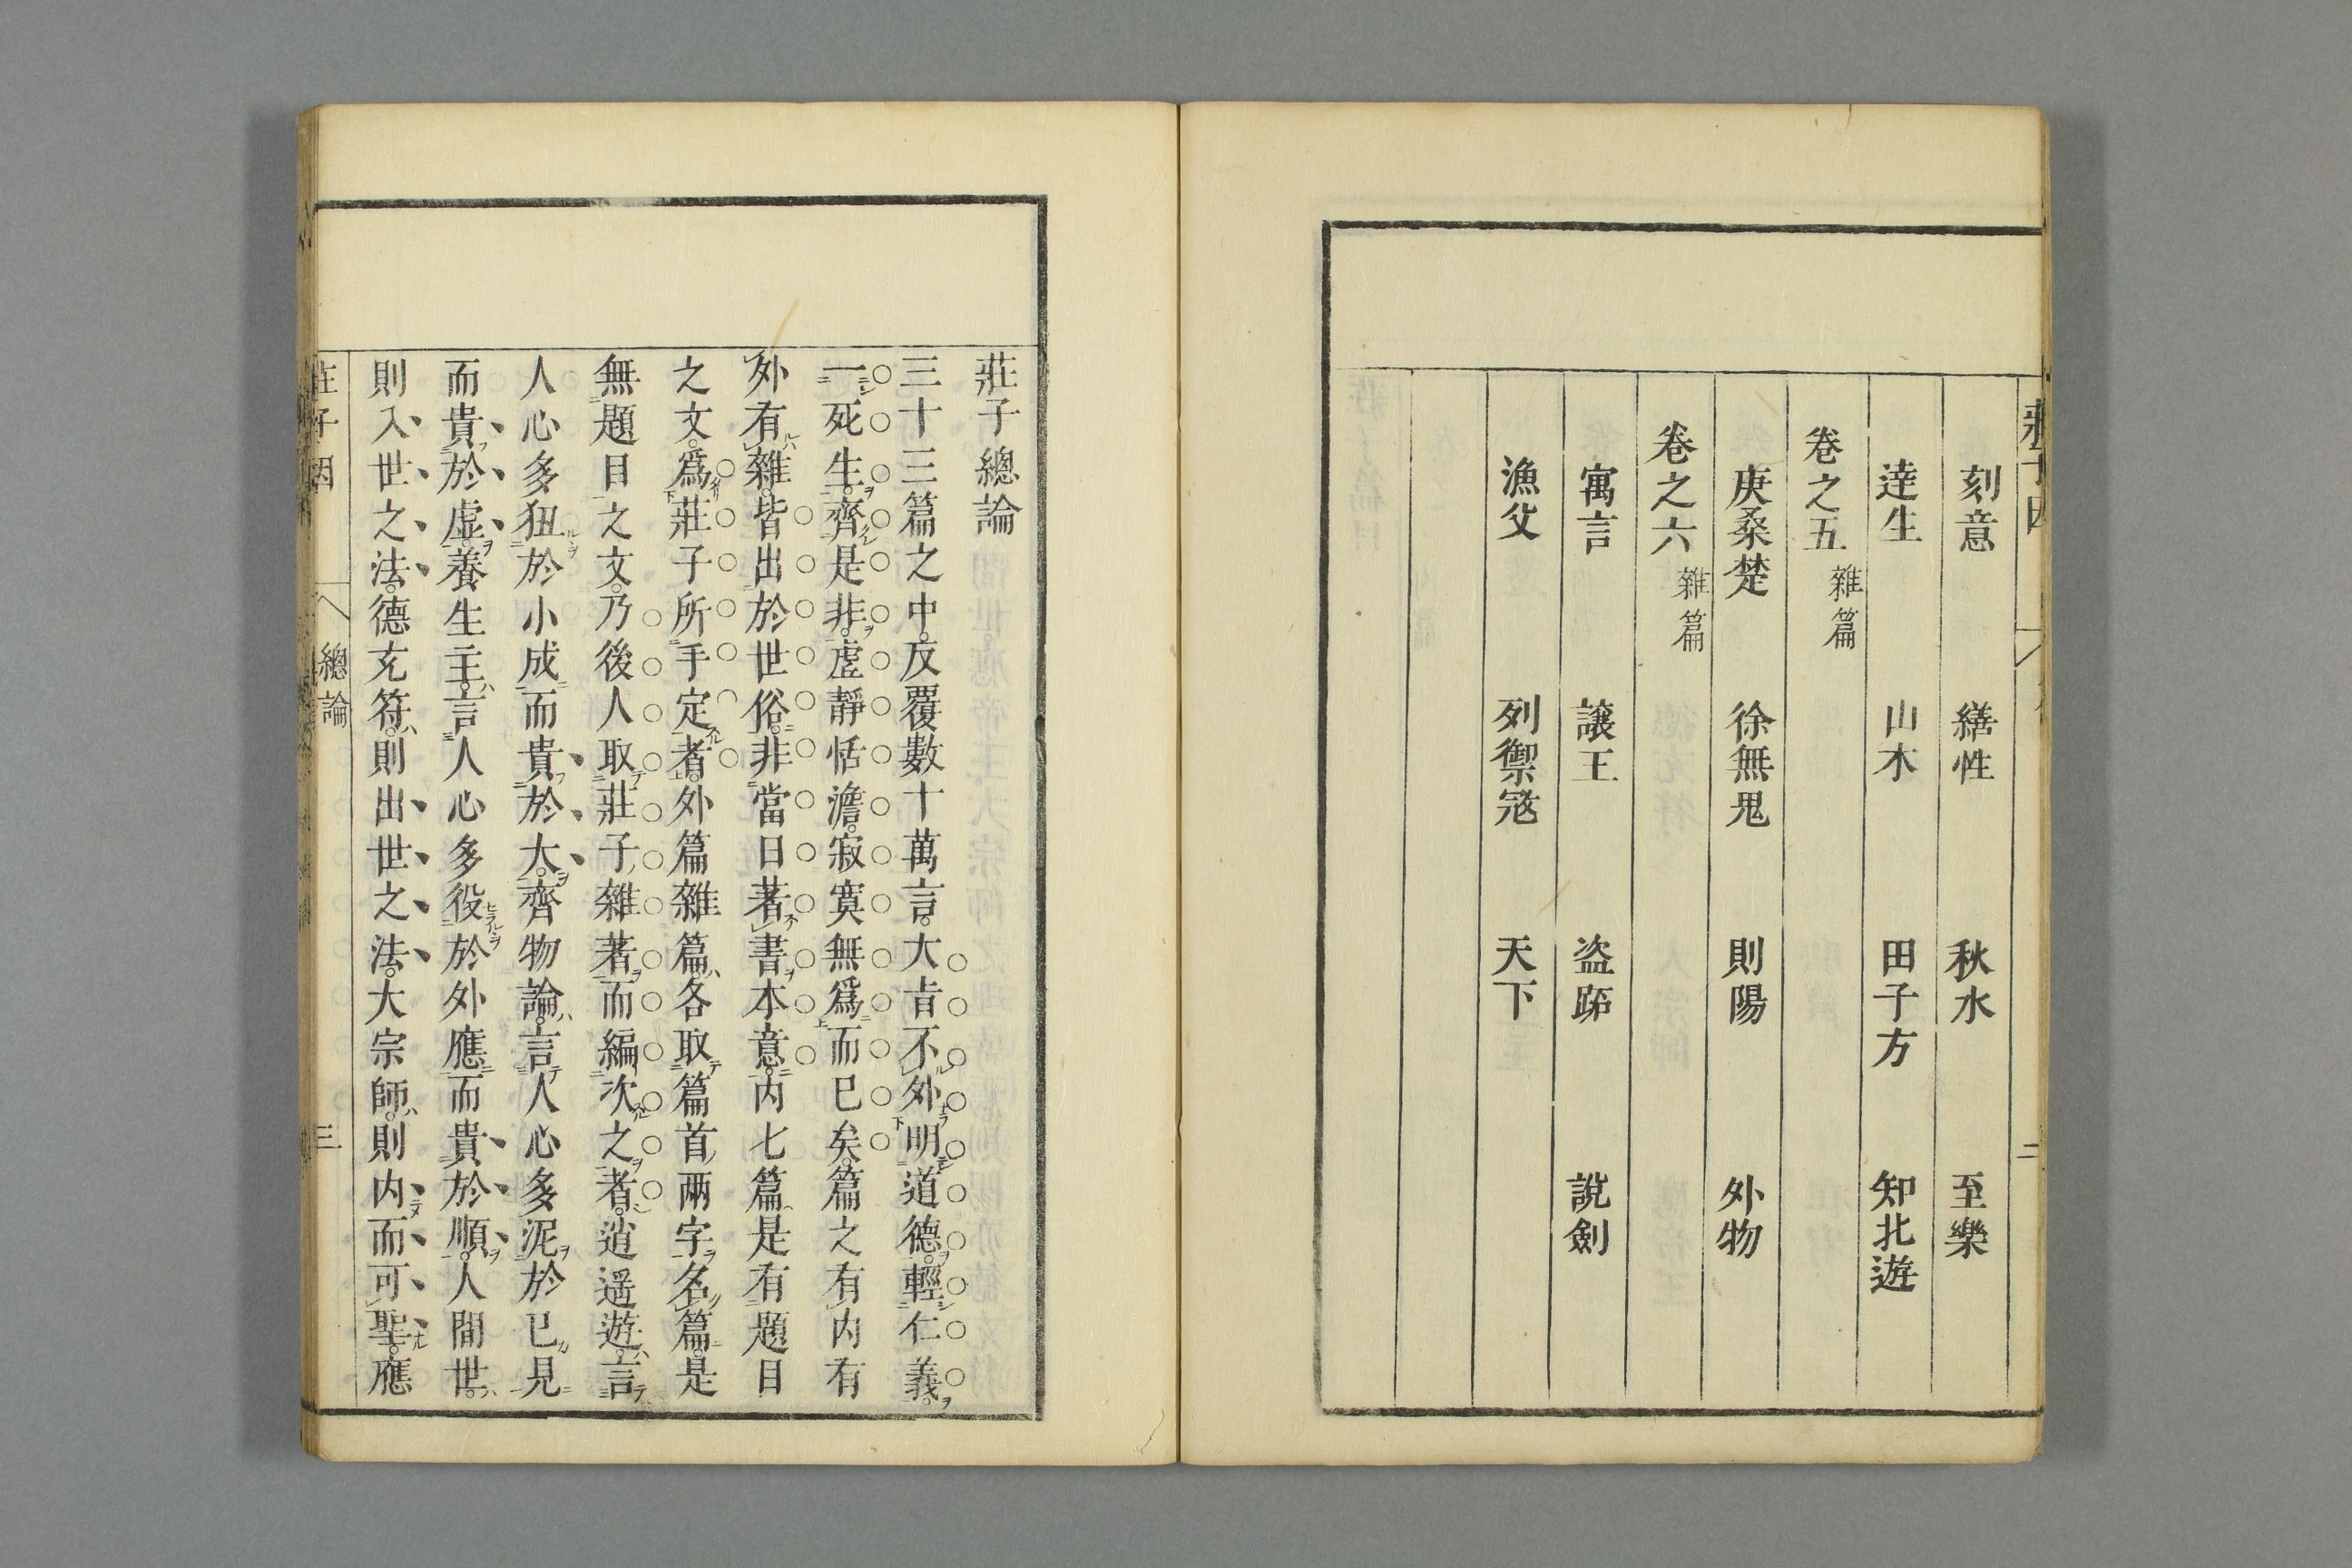 刻意 繕性 秋水 至樂
達生 山木 田子方 知北遊
卷之五 雜篇
庚桑楚 徐無鬼 則陽 外物
卷之六 雜篇
寓言 讓王 盗跖 說劍
漁父 列禦寇 天下
莊子總論
三十三篇之中。反覆數十萬言。大㫖不外明道德。輕仁義。
一死生。齊是非。虛靜恬澹。寂寞無爲而已矣。篇之有内有
外有雜。皆出於世俗。非當日著書本意。内七篇是有題目
之文。爲莊子所手定者。外篇雜篇。各取篇首兩字名篇。是
無題目之文。乃後人取莊子雜著而編次之者。逍遥遊。言
人心多狃於小成而貴於大。齊物論。言人心多泥於已見
而貴於虛。養生主。言人心多役於外應而貴於順。人間世。
則入世之法。德充符。則出世之法。大宗師。則内而可聖。應
莊子因 總論 三